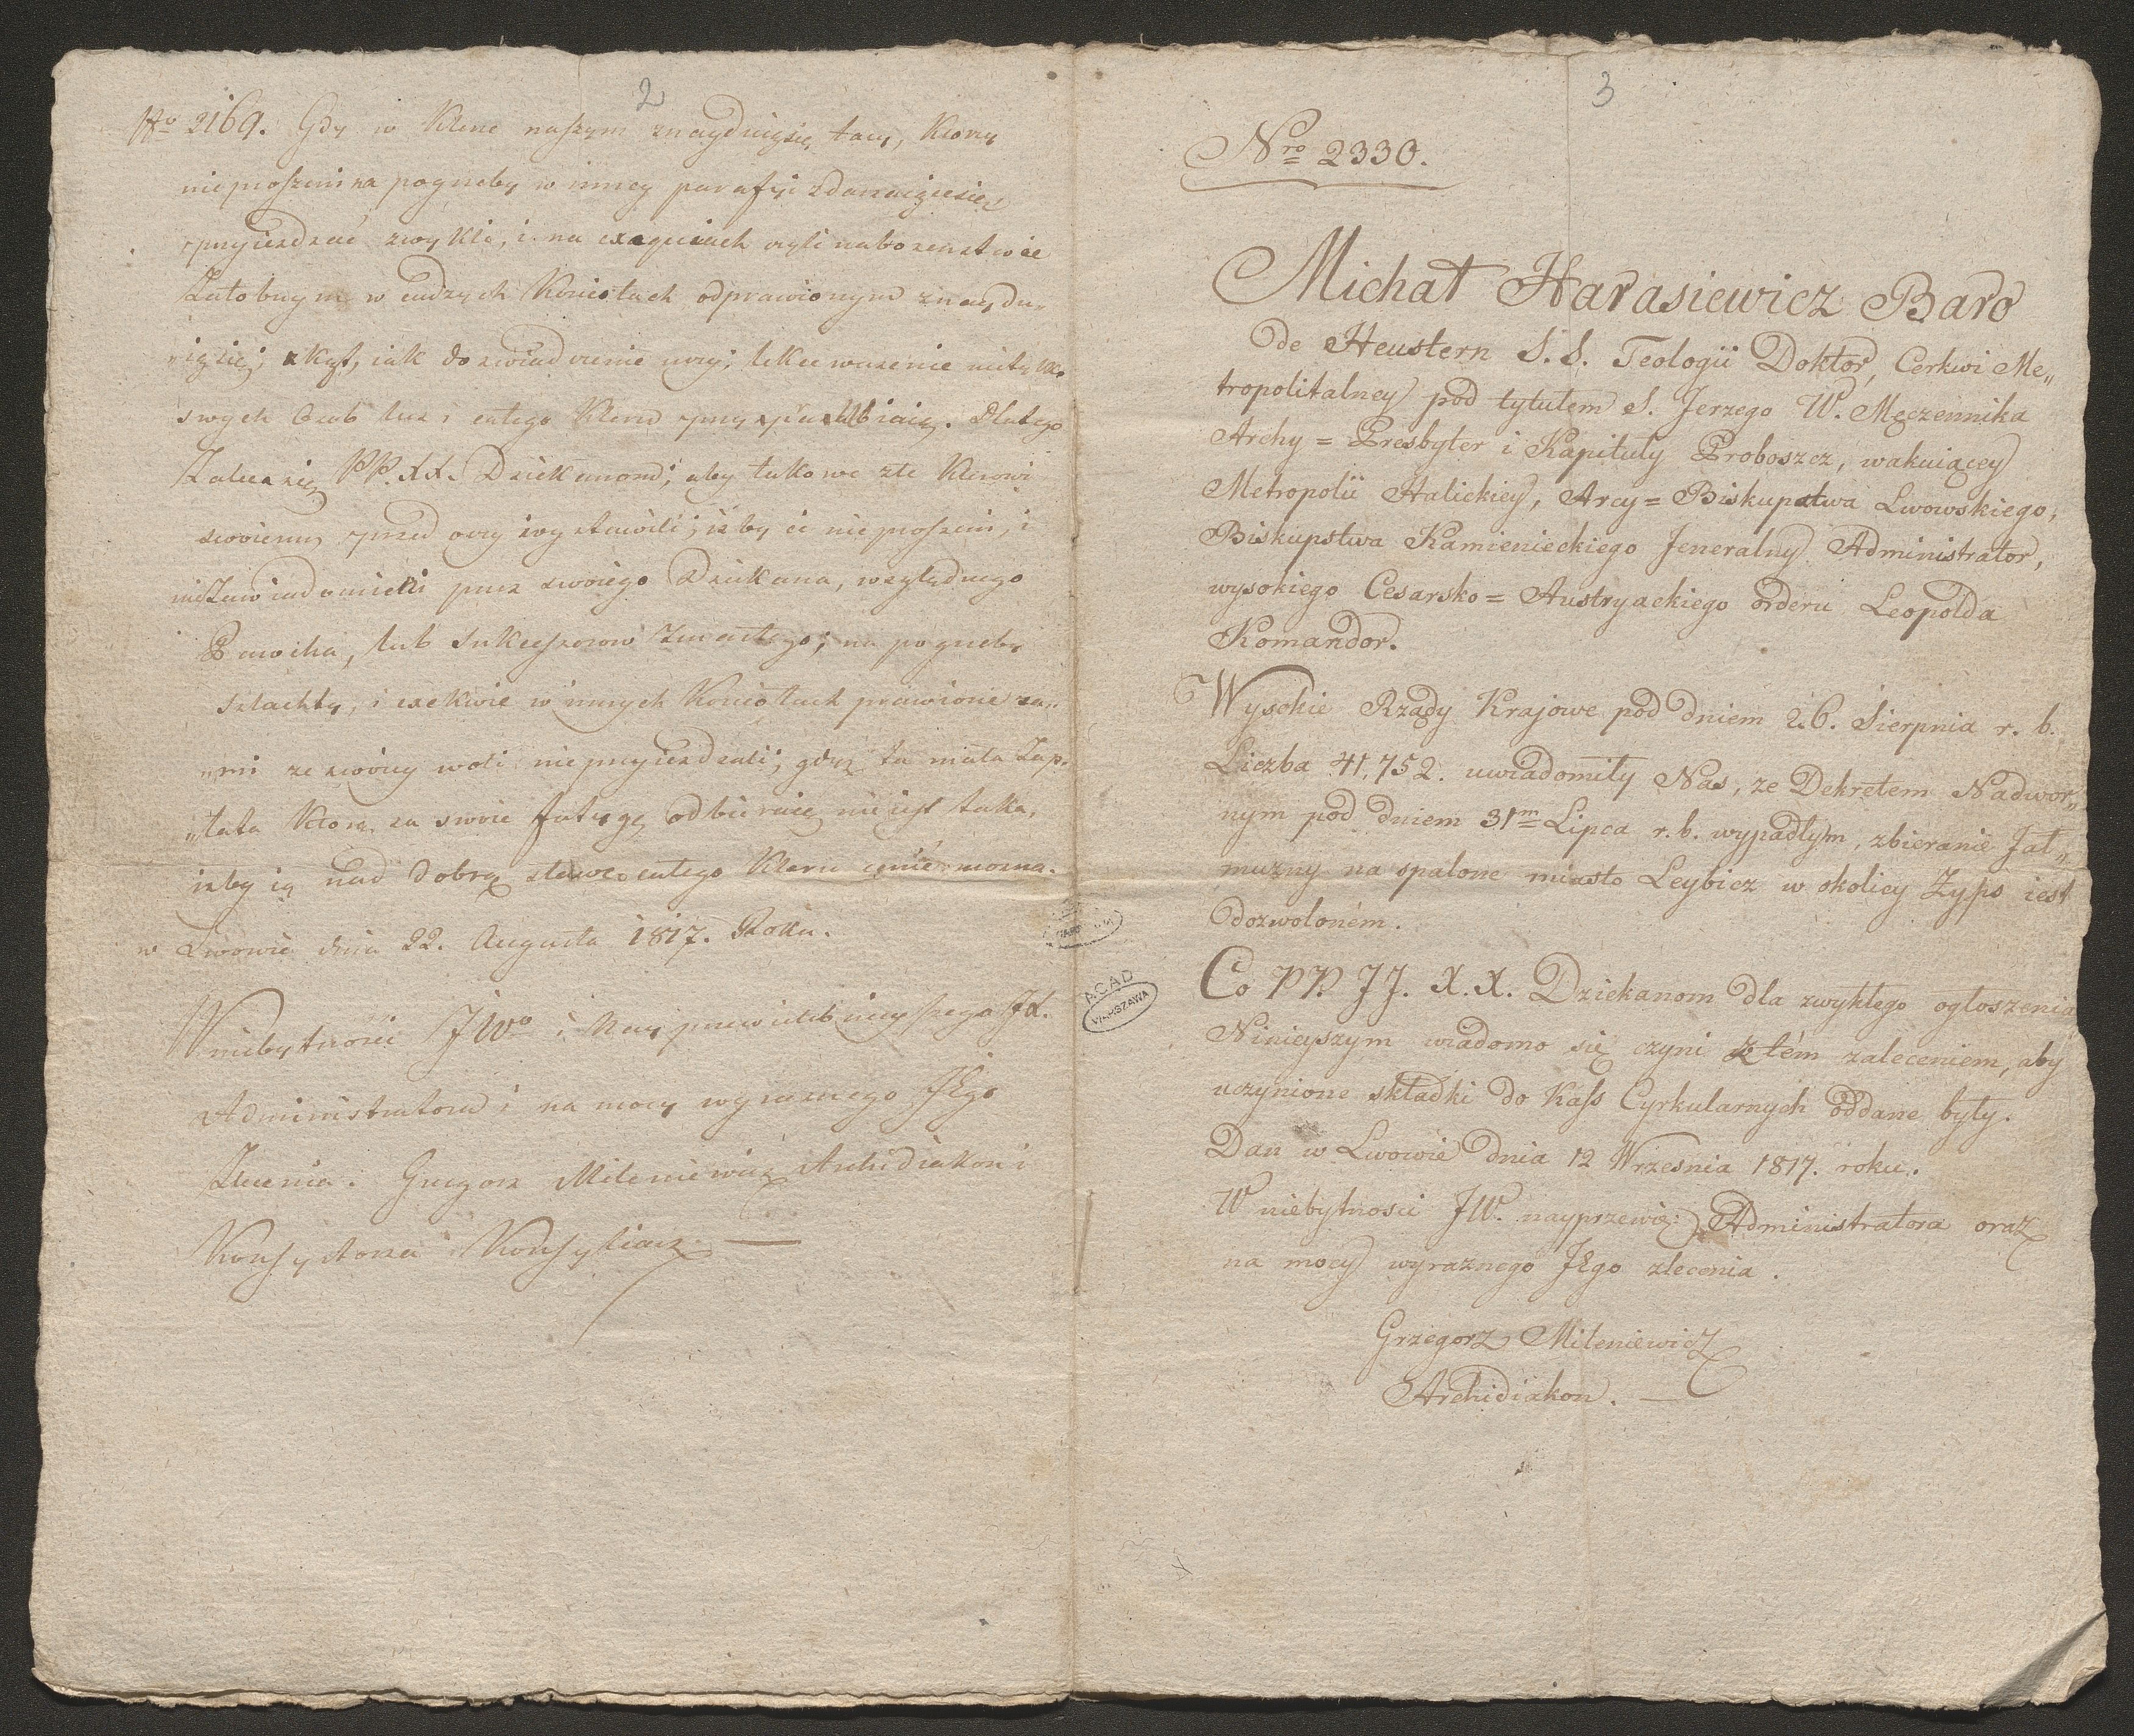 2
No 2169. Gdy w Klerze naszym znayduią się tacy, ktorzy
nieproszeni na pogrzeby w inney parafyi zdarzaiącesię
przyieżdzać zwykli, i na exequiach czyli nabozenstwie
Załobnym w cudzych Kosciołach odprawionym znaydu„
iąsię; zkąd, iak doswiadczenie uczy, lekce wazenie nietylko
swych Osob lecz i całego Kleru przysposabiaią. Dlatego
Zaleca się PP. XX. Dziekanom; aby takowe złe Klerowi
swoiemu przed oczy wystawili; izby ci nieproszeni, i
niezawiadomieni przez swoiego Dziekana, względnego
Parocha, lub Sukcessorow Zmarłego; na pogrzeby
szlachty, i exekwie w innych Kosciołach prawione sa„
„mi ze swoiey woli nieprzyiezdzali; gdyz ta mała Zap„
„łata ktorą za swoie fatygę odbieraią nie iest taka,
izby ią nad dobrą sławę całego Kleru cenić mozna.
w Lwowie dnia 22. Augusta 1817. Roku.
W niebytnosci JWo i Nayprzewielebnieyszego JX.
Administratora i na mocy wyraznego JEgo
Zlecenia. Grzegorz Mileniewicz Archidiakon i
Konsystorza Konsyliarz. —
3
Nro 2330.
Michał Harasiewicz Baro
de Neustern S. S. Teologii Doktor, Cerkwi Me„
tropolitalney pod tytułem S. Jerzego W. Męczennika
Archy = Presbyter i Kapituły Proboszcz, wakuiącey
Metropolii Halickiey, Arcy = Biskupstwa Lwowskiego,
Biskupstwa Kamienieckiego Jeneralny Administrator,
wysokiego Cesarsko = Austryackiego orderu Leopolda
Komandor.
Wysokie Rządy Krajowe pod dniem 26. Sierpnia r. b.
Liczba 41,752. uwiadomiły Nas, ze Dekretem Nadwor„
nym pod dniem 31m Lipca r. b. wypadłym, zbieranie Jał„
muzny na spalone miasto Leybicz w okolicy Zyps iest
dozwoloném.
Co PP. JJ. X. X. Dziekanom dla zwykłego ogłoszenia
Ninieyszym wiadomo się czyni z tém zaleceniem, aby
uczynione składki do Kass Cyrkularnych oddane były.
Dan w Lwowie dnia 12 Wrzesnia 1817. roku.
W niebytnosci JW. nayprzewie: Administratora oraz
na mocy wyraznego JEgo zlecenia.
Grzegorz Mileniewicz
Archidiakon. —
ACAD
WARSZAWA